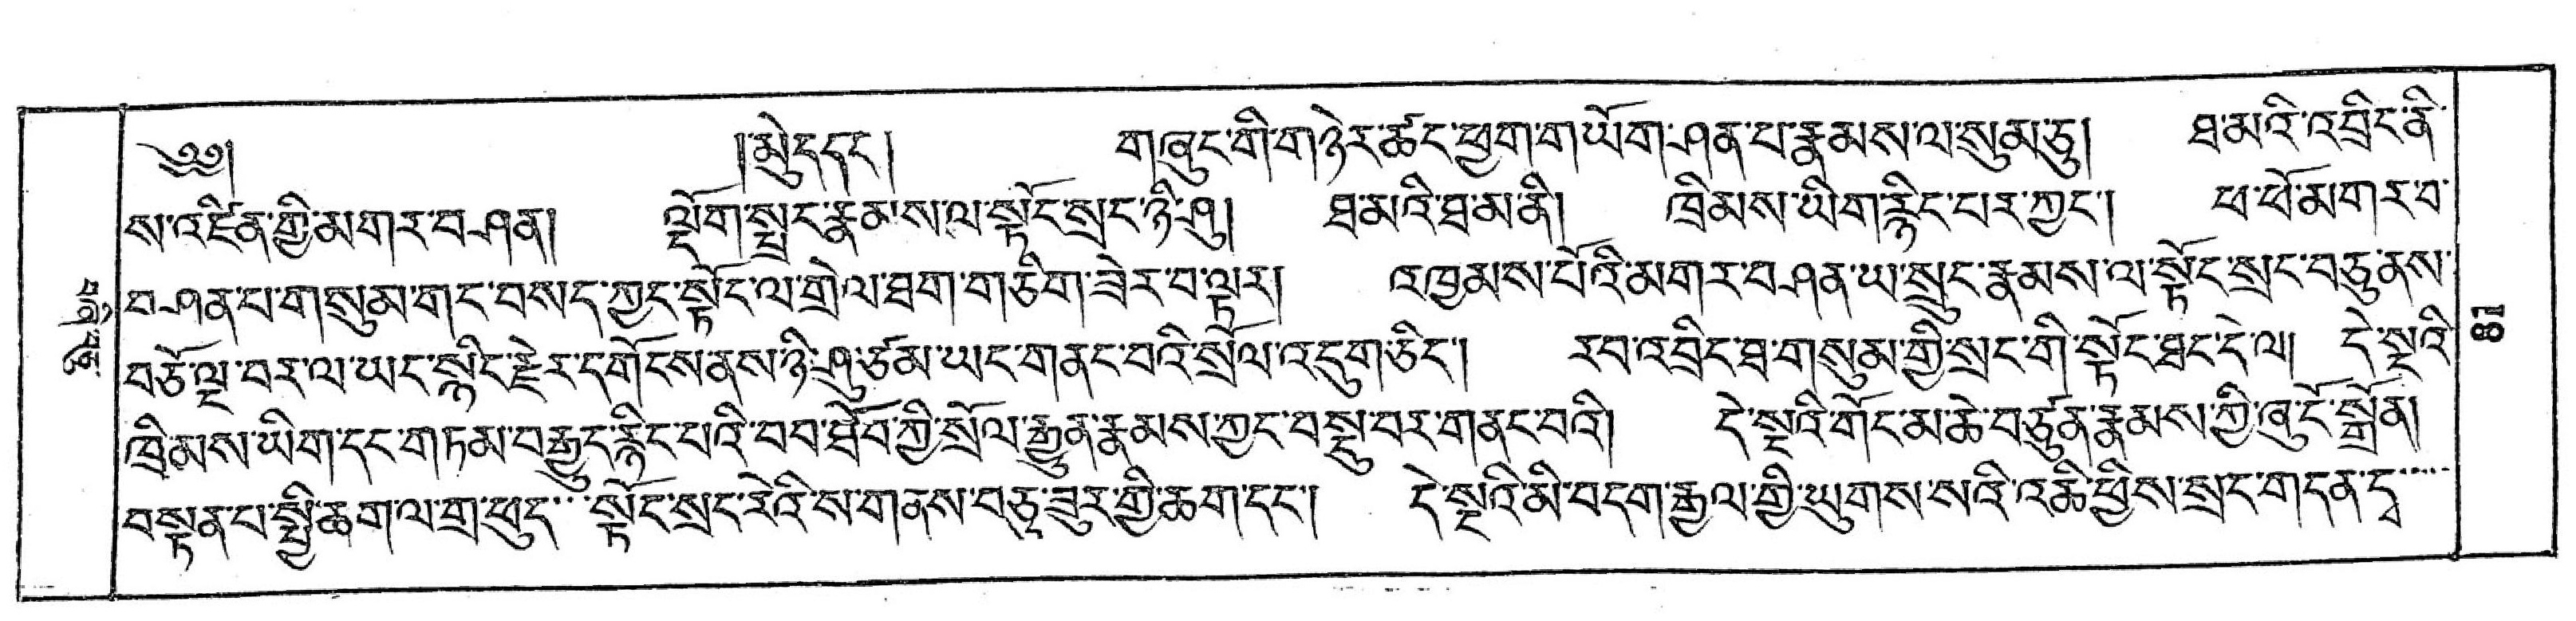 ༄༅། །མེུ་དང༌། གཞུང་གི་གཉེར་ཚང་ཕྱག་གཡོག་ཤན་པ་རྣམས་ལ་སུམ་ཅུ། ཐ་མའི་འབྲིང་ནི་
ས་འཛིན་གྱི་མགར་བ་ཤན། ལྡོག་སྤྲང་རྣམས་ལ་སྟོང་སྲང་ཉི་ཤུ། ཐ་མའི་ཐ་མ་ནི། ཁྲིམས་ཡིག་རྙིང་པར་ཀྱང༌། ཕ་ཕོ་མགར་བ་
བ་ཤན་པ་གསུམ་གང་བསད་ཀྱང་སྟོང་ལ་གྲེལ་ཐག་གཅིག་ཟེར་བ་ལྟར། འཁྱམས་པོའི་མགར་བ་ཤན་ཡ་སྲུང་རྣམས་ལ་སྟོང་སྲང་བཅུ་ནས་
བཅོ་ལྔ་བར་ལ་ཡང་སྙིང་རྗེར་དགོངས་ནས་ཉི་ཤུ་ཙམ་ཡང་གནང་བའི་སྲོལ་འདུག་ཅིང༌། རབ་འབྲིང་ཐ་གསུམ་གྱི་སྲང་གི་སྟོང་ཐང་དེ་ལ། དེ་སྔའི་
ཁྲིམས་ཡིག་དང་གཏམ་བརྒྱུད་རྙིང་པའི་བབ་ཐོབ་ཀྱི་སྲོལ་རྒྱུན་རྣམས་ཀྱང་བསྡུ་བར་གནང་བའི། དེ་སྔའི་གོང་མ་ཆེ་བཙུན་རྣམས་ཀྱི་ཞུ་ངོ་སྒྲོན།
བསྟན་པ་སྤྱི་ཆག་ལ་གྲ་ཕུད་ སྟོང་སྲང་རེའི་ས་གནས་བཅུ་ཟུར་གྱི་ཆག་དང༌། དེ་སྔའི་མི་བདག་རྒྱལ་གྱི་ཡུགས་སའི་འཆི་ཕྱིས་སྲང་གདན་དྭ